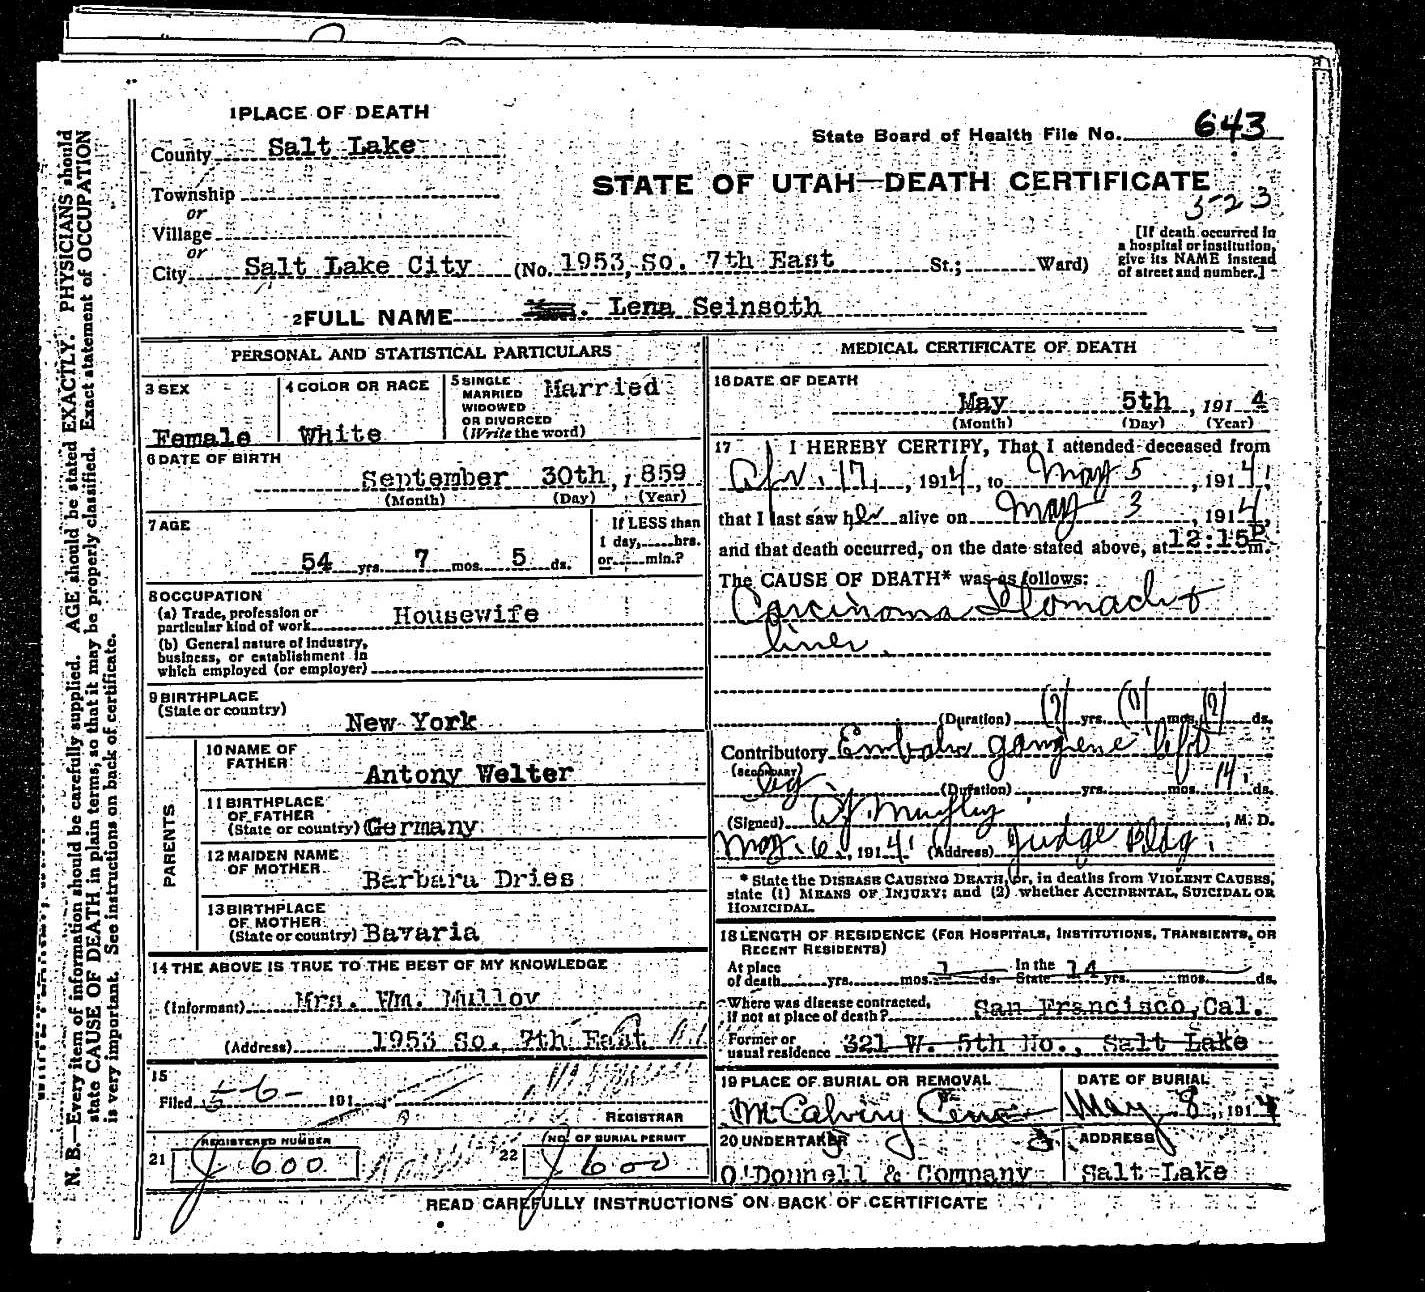 1 PLACE OF DEATH
County Salt Lake
State Board of Health File No. 643
Township
STATE OF UTAH—DEATH CERTIFICATE
523
or
Village
or
City Salt Lake City (No. 1953, So. 7th East St.; Ward)
[If death occurred in
a hospital or institution,
give its NAME instead
of street and number.]
2 FULL NAME Lena Seinsoth
PERSONAL AND STATISTICAL PARTICULARS
3 SEX
Female
4 COLOR OR RACE
White
5 SINGLE
MARRIED
WIDOWED
OR DIVORCED
(Write the word)
Married
6 DATE OF BIRTH
September 30th, 1859
(Month) (Day) (Year)
7 AGE
54 yrs. 7 mos. 5 ds.
If LESS than
1 day, hrs.
or min.?
8 OCCUPATION
(a) Trade, profession or
particular kind of work Housewife
(b) General nature of industry,
business, or establishment in
which employed (or employer)
9 BIRTHPLACE
(State or country)
New York
PARENTS
10 NAME OF
FATHER
Antony Welter
11 BIRTHPLACE
OF FATHER
(State or country) Germany
12 MAIDEN NAME
OF MOTHER
Barbara Dries
13 BIRTHPLACE
OF MOTHER
(State or country) Bavaria
14 THE ABOVE IS TRUE TO THE BEST OF MY KNOWLEDGE
(Informant) Mrs. Wm. Mulloy
(Address) 1953 So. 7th East
15
Filed 5-6- 191
REGISTRAR
21 REGISTERED NUMBER
J 600
22 NO. OF BURIAL PERMIT
J 600
MEDICAL CERTIFICATE OF DEATH
16 DATE OF DEATH
May 5th, 1914
(Month) (Day) (Year)
17 I HEREBY CERTIFY, That I attended deceased from
Apr. 17, 1914, to May 5, 1914,
that I last saw her alive on May 3, 1914,
and that death occurred, on the date stated above, at 12:15P m.
The CAUSE OF DEATH* was as follows:
Carcinoma Stomach &
liver.
(Duration) (?) yrs. (?) mos. (?) ds.
Contributory Embolic gangrene left
(SECONDARY) leg (Duration) yrs. mos. 14 ds.
(Signed) M. D.
May 6, 1914 (Address) Judge Bldg.
* State the DISEASE CAUSING DEATH, or, in deaths from VIOLENT CAUSES,
state (1) MEANS OF INJURY; and (2) whether ACCIDENTAL, SUICIDAL OR
HOMICIDAL.
18 LENGTH OF RESIDENCE (FOR HOSPITALS, INSTITUTIONS, TRANSIENTS, OR
RECENT RESIDENTS)
At place In the
of death yrs. mos. 1 ds. State 14 yrs. mos. ds.
Where was disease contracted,
if not at place of death? San Francisco, Cal.
Former or
usual residence 321 W. 5th No., Salt Lake
19 PLACE OF BURIAL OR REMOVAL
Mt Calvary Cem
DATE OF BURIAL
May 8, 1914
20 UNDERTAKER
O'Donnell & Company
ADDRESS
Salt Lake
READ CAREFULLY INSTRUCTIONS ON BACK OF CERTIFICATE
N. B.—Every item of information should be carefully supplied. AGE should be stated EXACTLY. PHYSICIANS should
state CAUSE OF DEATH in plain terms, so that it may be properly classified. Exact statement of OCCUPATION
is very important. See instructions on back of certificate.